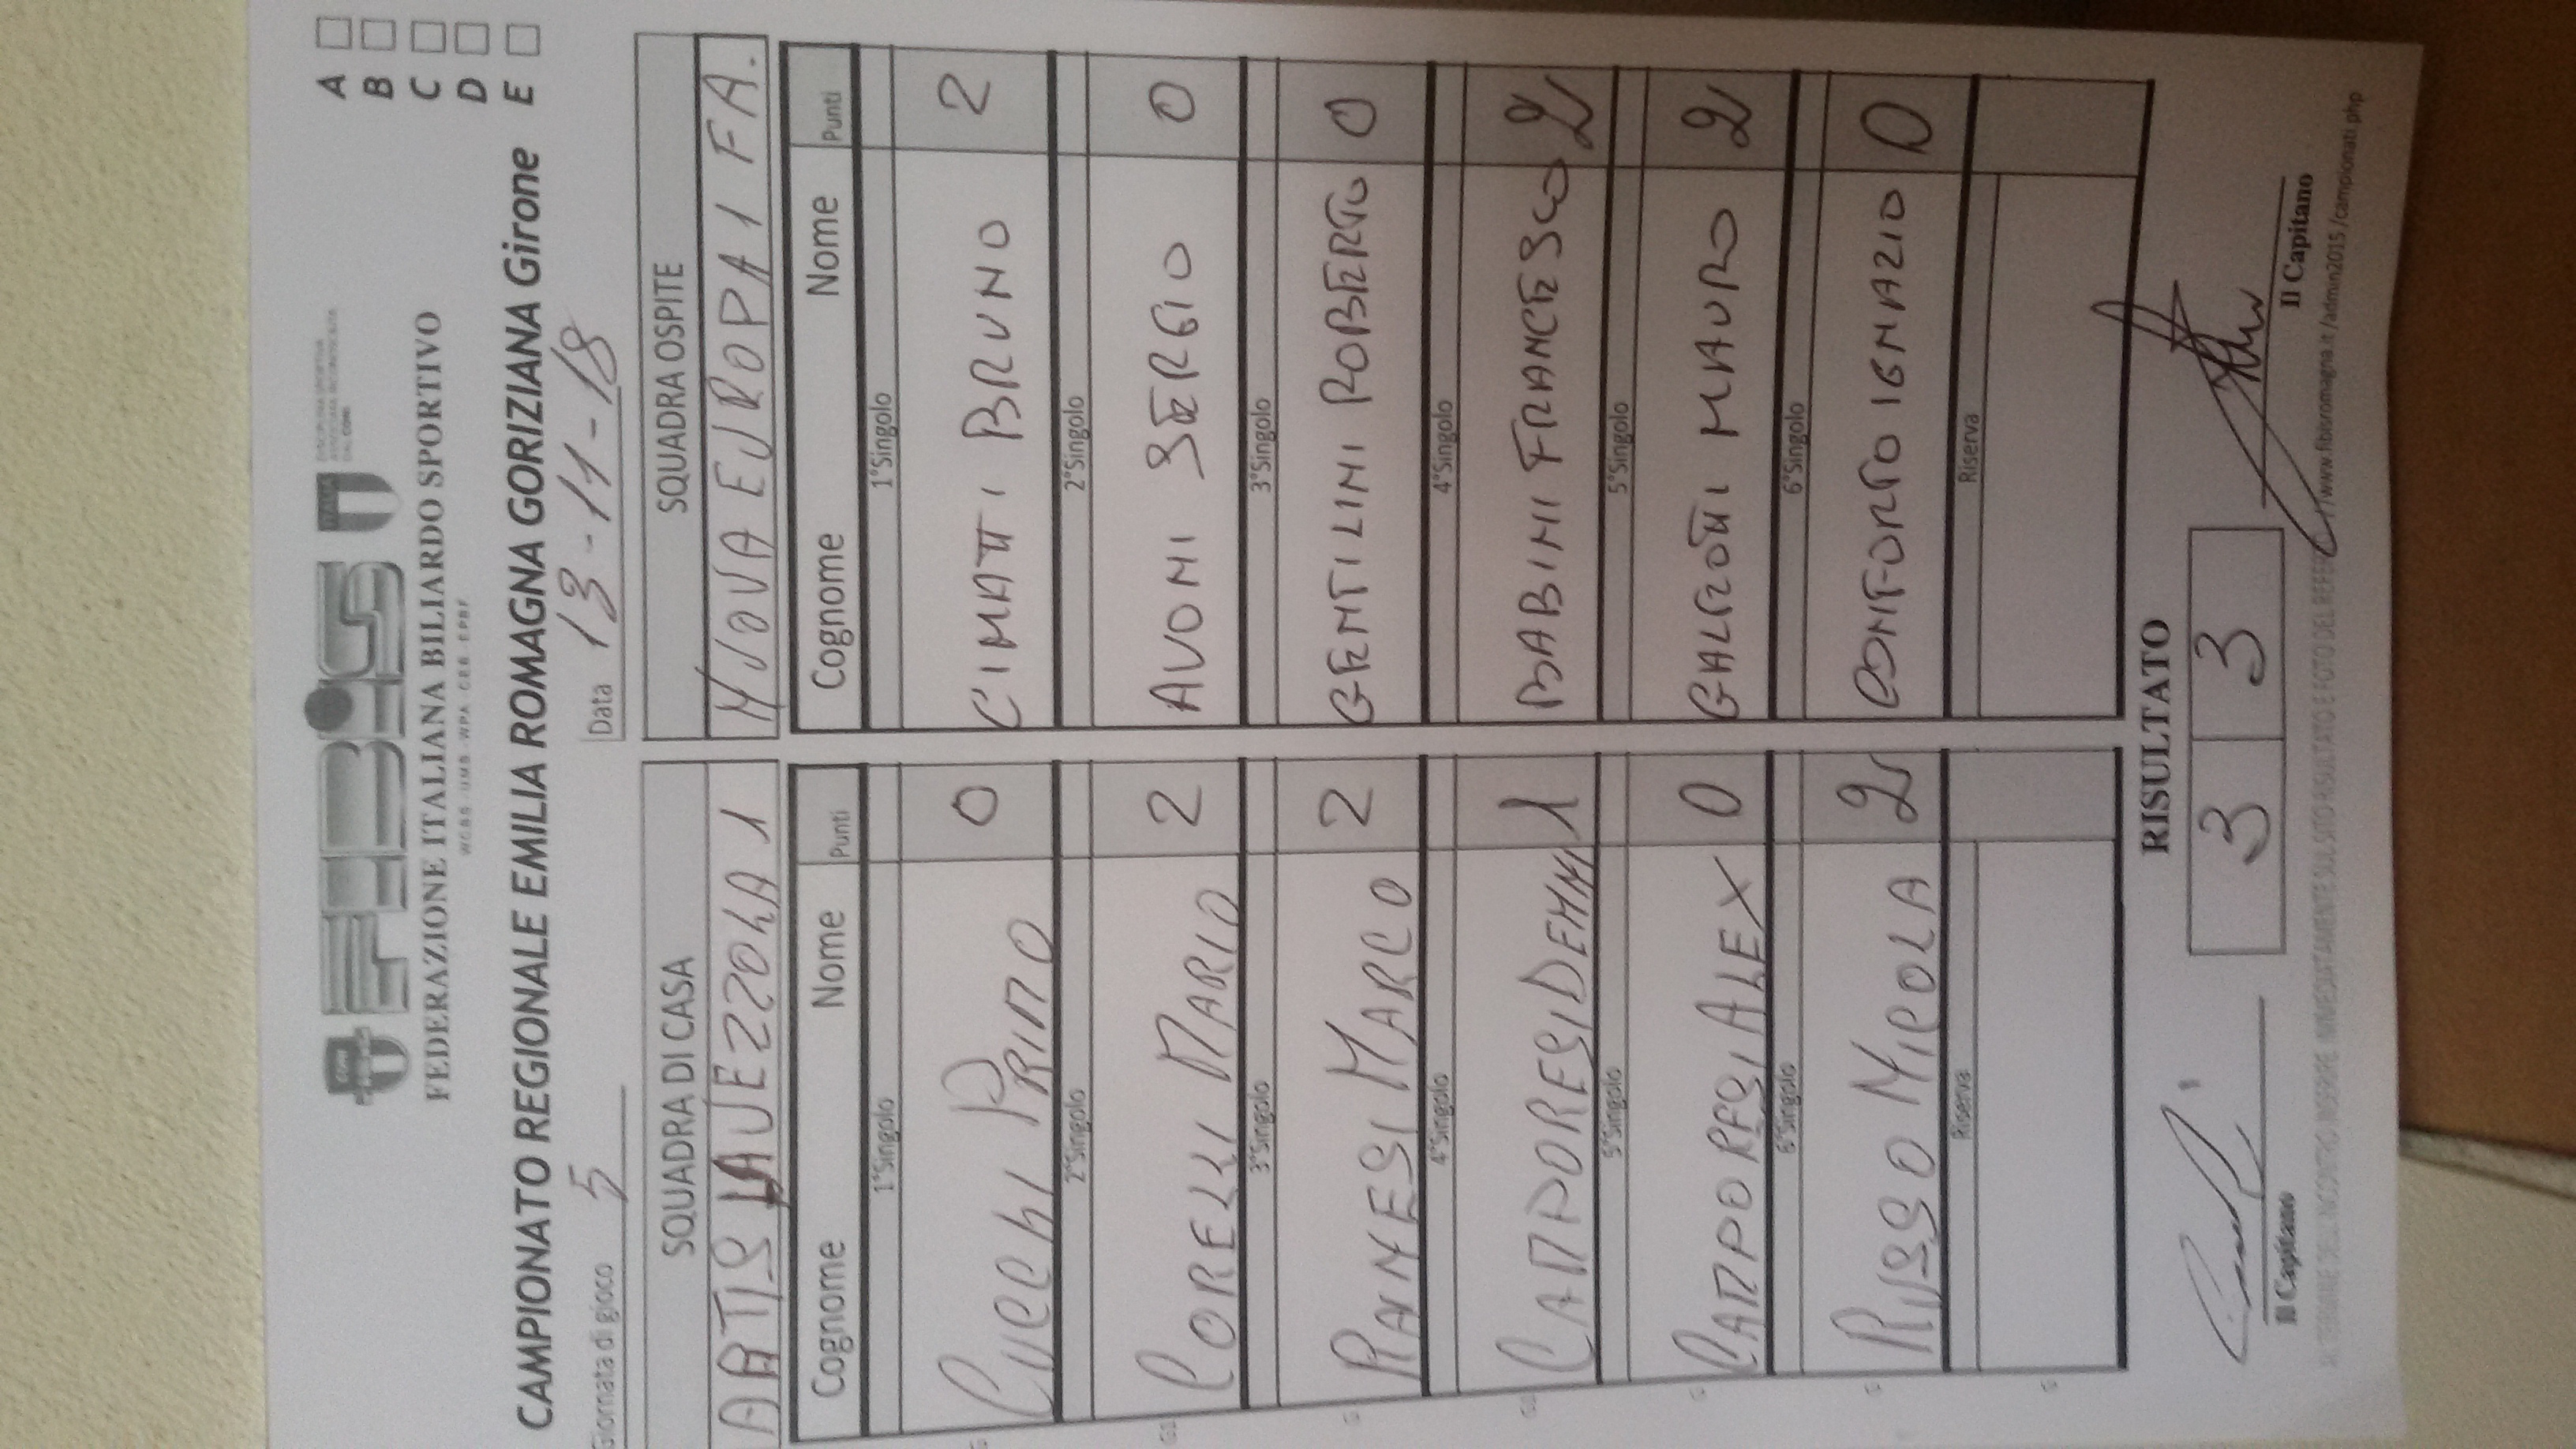 FIBIS
FEDERAZIONE ITALIANA BILIARDO SPORTIVO
WCBS - UMB - WPA - CEB - EPBF
CAMPIONATO REGIONALE EMILIA ROMAGNA GORIZIANA Girone
A
B
C
D
E
Giornata di gioco 5
Data 13-11-18
SQUADRA DI CASA
SQUADRA OSPITE
ARTISLAVEZZOLA 1
NUOVA EUROPA 1 FA.
Cognome Nome Punti
Cognome Nome Punti
1°Singolo
1°Singolo
CUCCHI PRIMO 0
CIMATTI BRUNO 2
2°Singolo
2°Singolo
CORELLI MARIO 2
AVONI SERGIO 0
3°Singolo
3°Singolo
RANESI MARCO 2
GENTILINI ROBERTO 0
4°Singolo
4°Singolo
CAMPORESI DENNY 1
BABINI FRANCESCO 2
5°Singolo
5°Singolo
CAMPORESI ALEX 0
GALEOTTI MAURO 2
6°Singolo
6°Singolo
RUSSO NICOLA 2
CONFORTO IGNAZIO 0
Riserva
Riserva
RISULTATO
3 3
Il Capitano
Il Capitano
AL TERMINE DELL'INCONTRO INSERIRE IMMEDIATAMENTE SUL SITO RISULTATO E FOTO DEL REFERTO /www.fibisromagna.it/admin2015/campionati.php